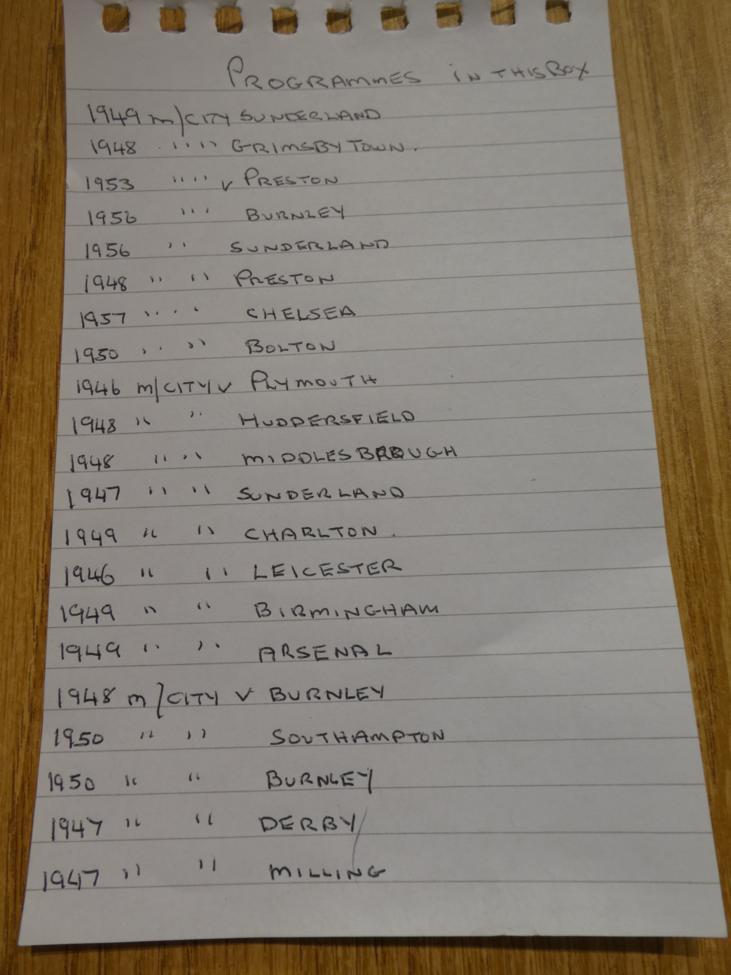 PROGRAMMES IN THIS BOX
1949 M/CITY SUNDERLAND
1948 '' '' GRIMSBY TOWN.
1953 '' '' V PRESTON
1956 ''' BURNLEY
1956 '' SUNDERLAND
1948 '' '' PRESTON
1957 '' '' CHELSEA
1950 '' '' BOLTON
1946 M/CITY V PLYMOUTH
1948 '' '' HUDDERSFIELD
1948 '' '' MIDDLESBROUGH
1947 '' '' SUNDERLAND
1949 '' '' CHARLTON.
1946 '' '' LEICESTER
1949 '' '' BIRMINGHAM
1949 '' '' ARSENAL
1948 M/CITY V BURNLEY
1950 '' '' SOUTHAMPTON
1950 '' '' BURNLEY
1947 '' '' DERBY
1947 '' '' MILLING